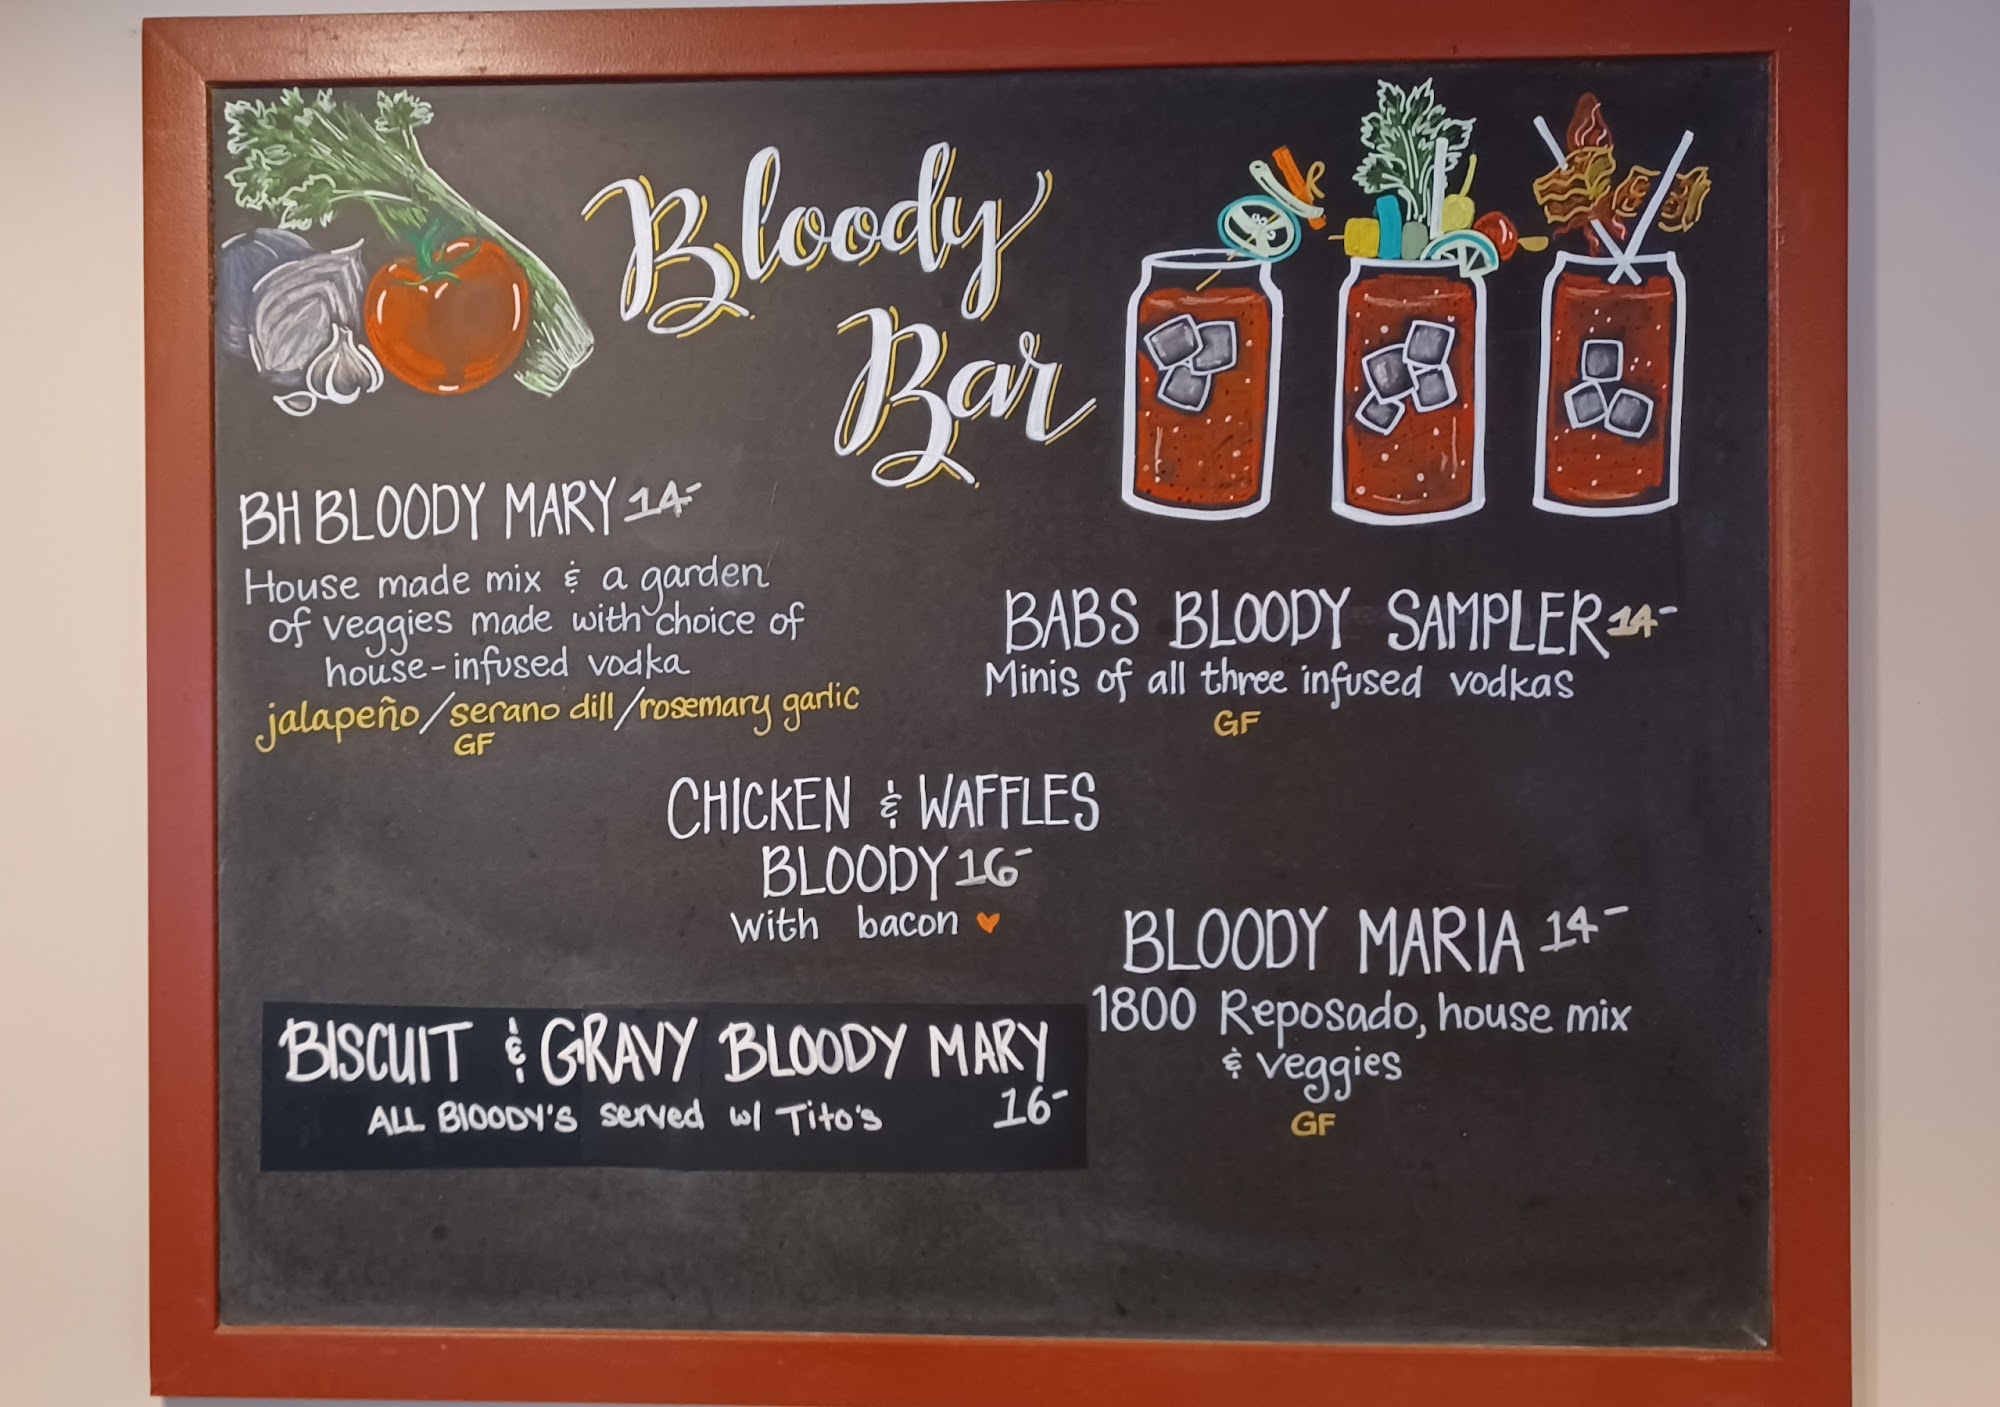 Bloody
Bar
BH BLOODY MARY 14-
House made mix & a garden
of veggies made with choice of
house-infused vodka
jalapeño/serano dill/rosemary garlic
GF
BABS BLOODY SAMPLER 14-
Minis of all three infused vodkas
GF
CHICKEN & WAFFLES
BLOODY 16-
with bacon
BLOODY MARIA 14-
1800 Reposado, house mix
& veggies
GF
BISCUIT & GRAVY BLOODY MARY
16-
ALL BLOODY'S served w/ Tito's